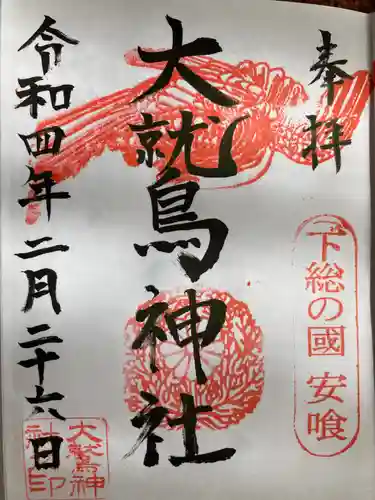 奉拝
下総の國 安喰
大鷲神社
令和四年 二月二十六日
大鷲神
社之印